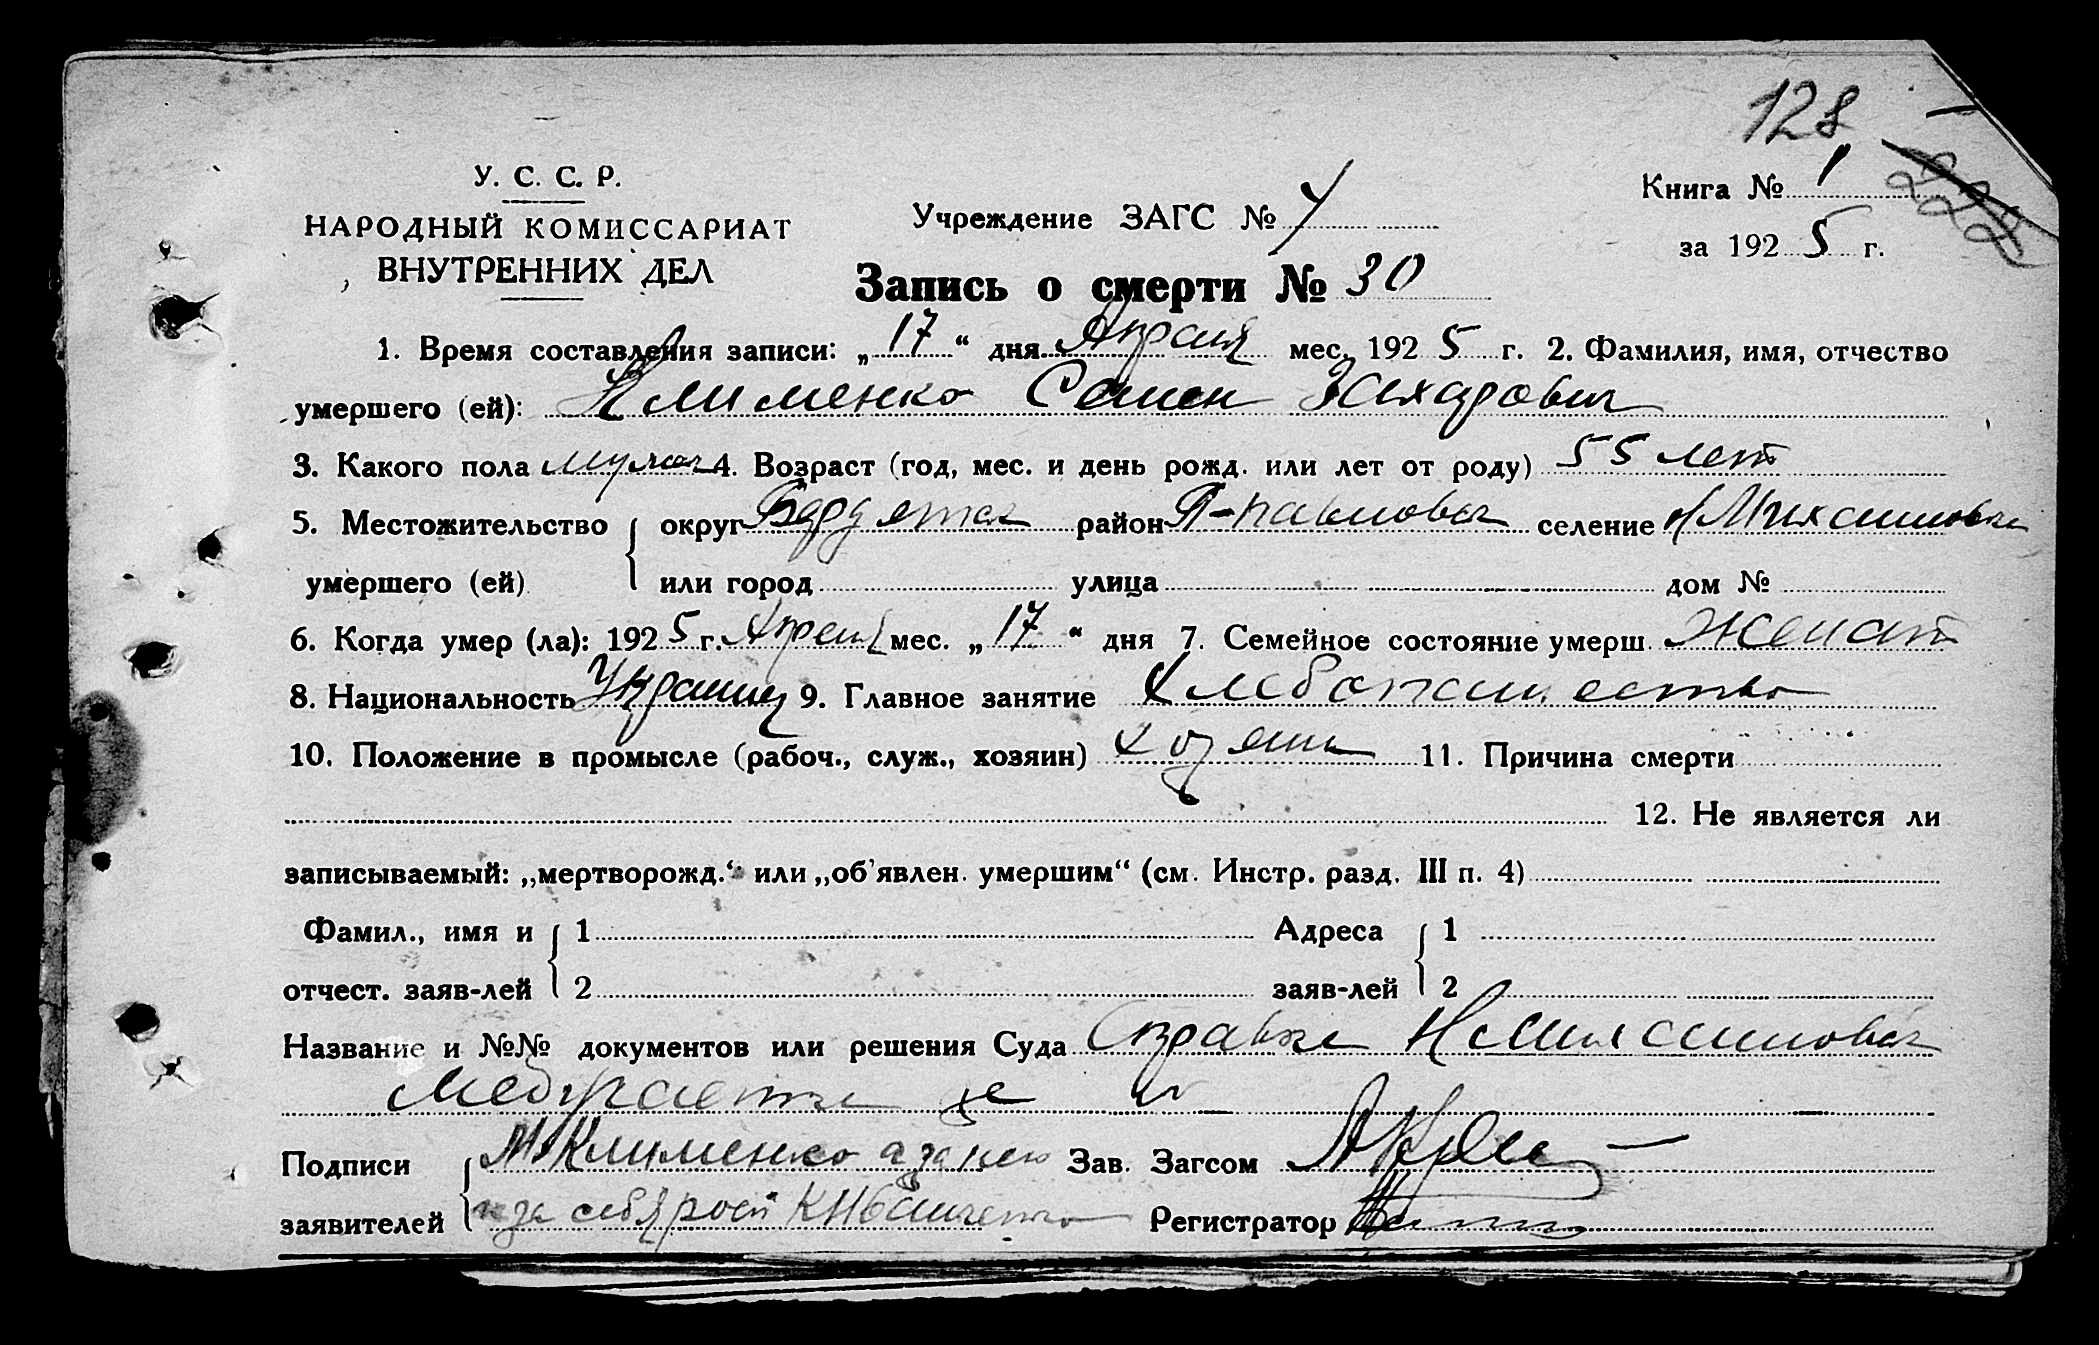 128
У. С. С. Р.
НАРОДНЫЙ КОМИССАРИАТ
ВНУТРЕННИХ ДЕЛ
Учреждение ЗАГС №
Книга № 1
за 1925 г.
Запись о смерти № 30
1. Время составления записи: „17“ дня Апреля мес. 1925 г. 2. Фамилия, имя, отчество
умершего (ей): Клименко Семен Захарович
3. Какого пола муж 4. Возраст (год, мес. и день рожд. или лет от роду) 55 лет
5. Местожительство округ район селение
умершего (ей) или город улица дом №
6. Когда умер (ла): 1925 г. Апреля мес. „17“ дня 7. Семейное состояние умерш. Женат
8. Национальность Украинец 9. Главное занятие Хлебопашество
10. Положение в промысле (рабоч., служ., хозяин) хозяин 11. Причина смерти
12. Не является ли
записываемый: „мертворожд.“ или „об'явлен. умершим“ (см. Инстр. разд. III п. 4)
Фамил., имя и 1 Адреса 1
отчест. заяв-лей 2 заяв-лей 2
Название и №№ документов или решения Суда Справка
Подписи Клименко Зав. Загсом
заявителей Регистратор